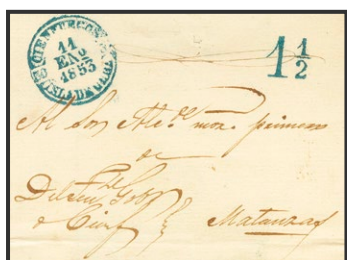 CIENFUEGOS
11
ENº
1853
ISLA DE CUBA
1 1/2
Al Sor Alc.de mor. primero
de
Del Ten.te Gobr
Matanzas